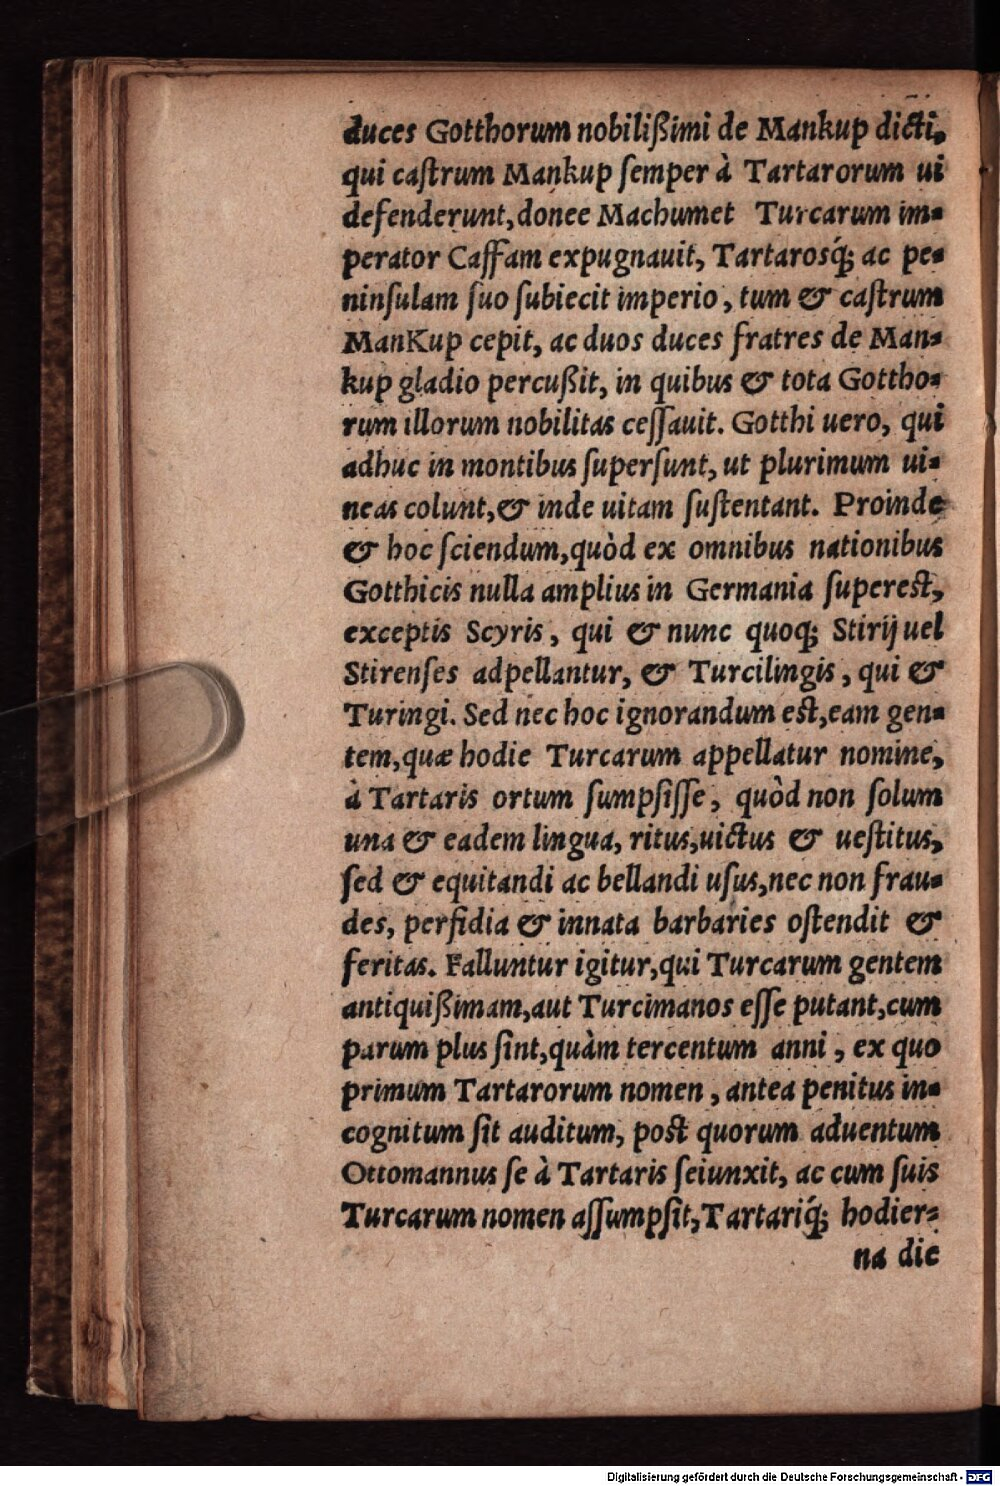 duces Gotthorum nobilißimi de Mankup dicti,
qui caſtrum Mankup ſemper à Tartarorum ui
defenderunt, donec Machumet Turcarum im-
perator Caffam expugnauit, Tartarosq́; ac pe-
ninſulam ſuo ſubiecit imperio, tum & caſtrum
ManKup cepit, ac duos duces fratres de Man-
kup gladio percußit, in quibus & tota Gottho-
rum illorum nobilitas ceſſauit. Gotthi uero, qui
adhuc in montibus ſuperſunt, ut plurimum ui-
neas colunt, & inde uitam ſuſtentant. Proinde
& hoc ſciendum, quòd ex omnibus nationibus
Gotthicis nulla amplius in Germania ſupereſt,
exceptis Scyris, qui & nunc quoq; Stirij uel
Stirenſes adpellantur, & Turcilingis, qui &
Turingi. Sed nec hoc ignorandum eſt, eam gen-
tem, quæ hodie Turcarum appellatur nomine,
à Tartaris ortum ſumpſiſſe, quòd non ſolum
una & eadem lingua, ritus, uictus & ueſtitus,
ſed & equitandi ac bellandi uſus, nec non frau-
des, perfidia & innata barbaries oſtendit &
feritas. Falluntur igitur, qui Turcarum gentem
antiquißimam, aut Turcimanos eſſe putant, cum
parum plus ſint, quàm tercentum anni, ex quo
primum Tartarorum nomen, antea penitus in-
cognitum ſit auditum, poſt quorum aduentum
Ottomannus ſe à Tartaris ſeiunxit, ac cum ſuis
Turcarum nomen aſſumpſit, Tartariq́; hodier-
na die
Digitalisierung gefördert durch die Deutsche Forschungsgemeinschaft - DFG